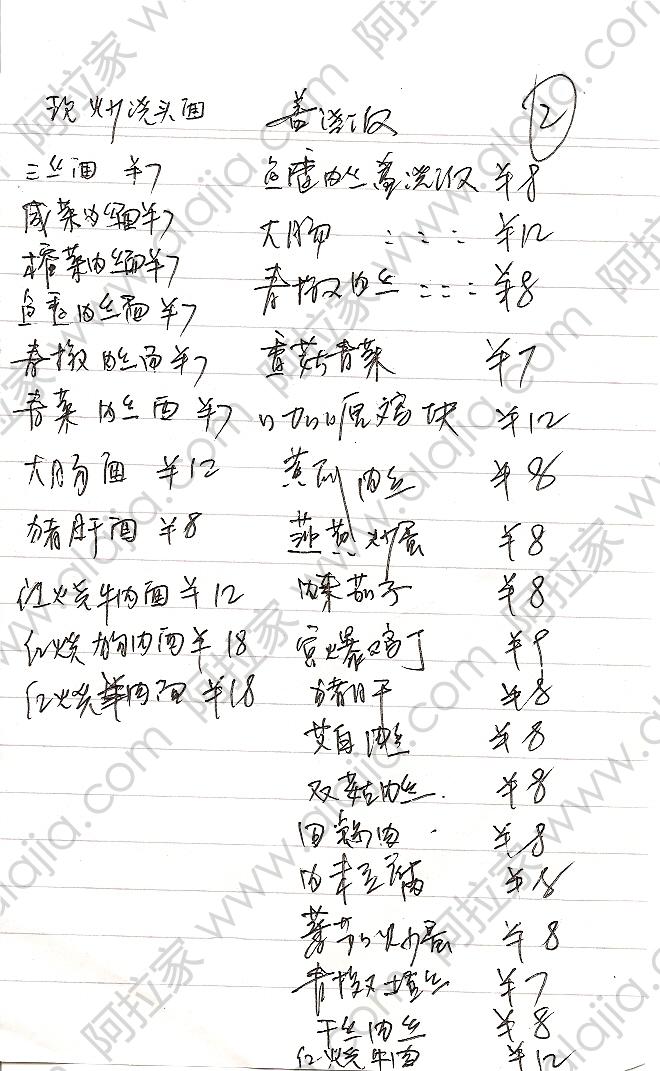 现炒浇头面
三丝面 ¥7
咸菜肉丝面 ¥7
榨菜肉丝面 ¥7
鱼香肉丝面 ¥7
青椒肉丝面 ¥7
青菜肉丝面 ¥7
大肠面 ¥12
猪肝面 ¥8
红烧牛肉面 ¥12
红烧狗肉面 ¥18
红烧羊肉面 ¥18
盖浇饭
2
鱼香肉丝盖浇饭 ¥8
大肠 : : : ¥12
青椒肉丝 : : : ¥8
香菇青菜 ¥7
咖喱鸡块 ¥12
肉丝 ¥8
炒蛋 ¥8
肉末茄子 ¥8
宫爆鸡丁 ¥9
猪肝 ¥8
茭白肉丝 ¥8
双菇肉丝 ¥8
回锅肉 ¥8
肉末豆腐 ¥8
蕃茄炒蛋 ¥8
青椒土豆丝 ¥7
干丝肉丝 ¥8
红烧牛肉 ¥12
阿拉家 www.alajia.com